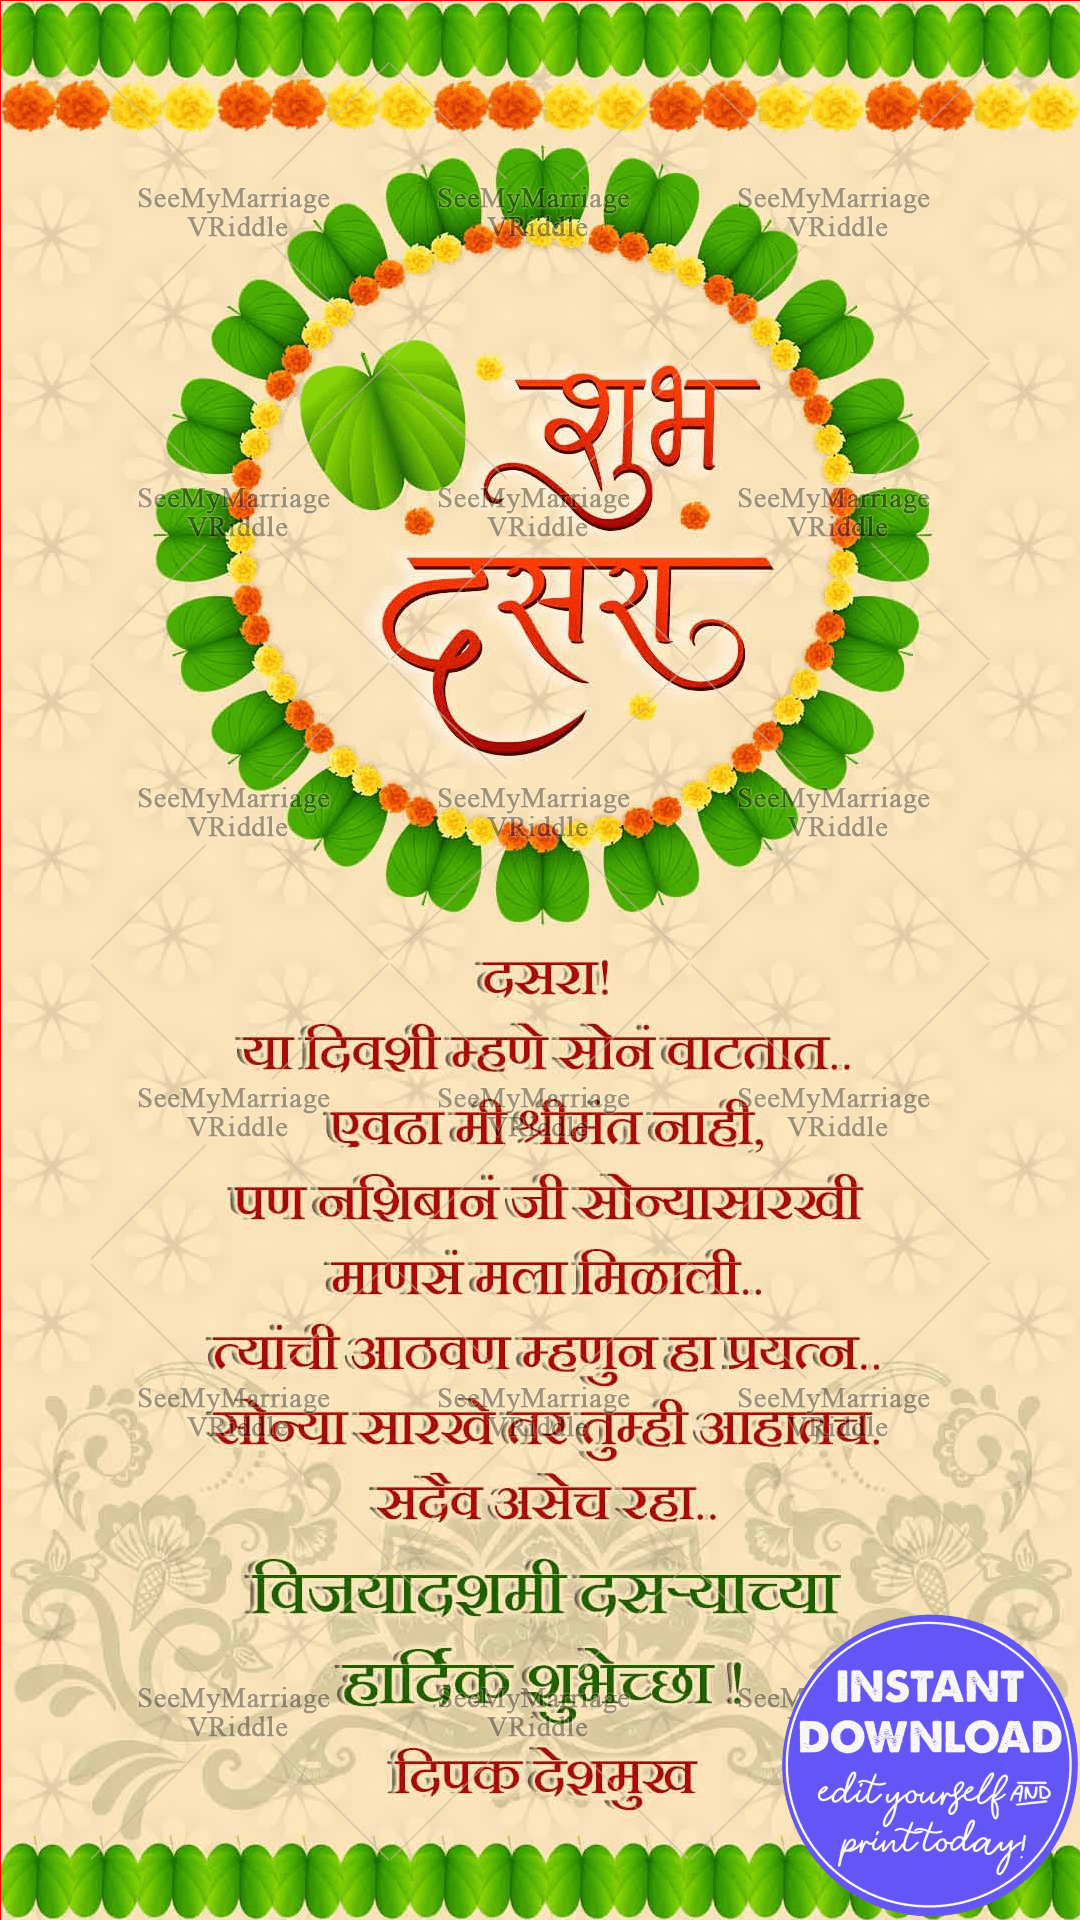 शुभ
दसरा
दसरा!
या दिवशी म्हणे सोनं वाटतात..
एवढा मी श्रीमंत नाही,
पण नशिबानं जी सोन्यासारखी
माणसं मला मिळाली..
त्यांची आठवण म्हणुन हा प्रयत्न..
सोन्या सारखे तर तुम्ही आहातच.
सदैव असेच रहा..
विजयादशमी दसऱ्याच्या
हार्दिक शुभेच्छा !
दिपक देशमुख
INSTANT
DOWNLOAD
edit yourself AND
print today!
SeeMyMarriage SeeMyMarriage SeeMyMarriage
VRiddle VRiddle VRiddle
SeeMyMarriage SeeMyMarriage SeeMyMarriage
VRiddle VRiddle VRiddle
SeeMyMarriage SeeMyMarriage SeeMyMarriage
VRiddle VRiddle VRiddle
SeeMyMarriage SeeMyMarriage SeeMyMarriage
VRiddle VRiddle VRiddle
SeeMyMarriage SeeMyMarriage SeeMyMarriage
VRiddle VRiddle VRiddle
SeeMyMarriage SeeMyMarriage SeeM
VRiddle VRiddle